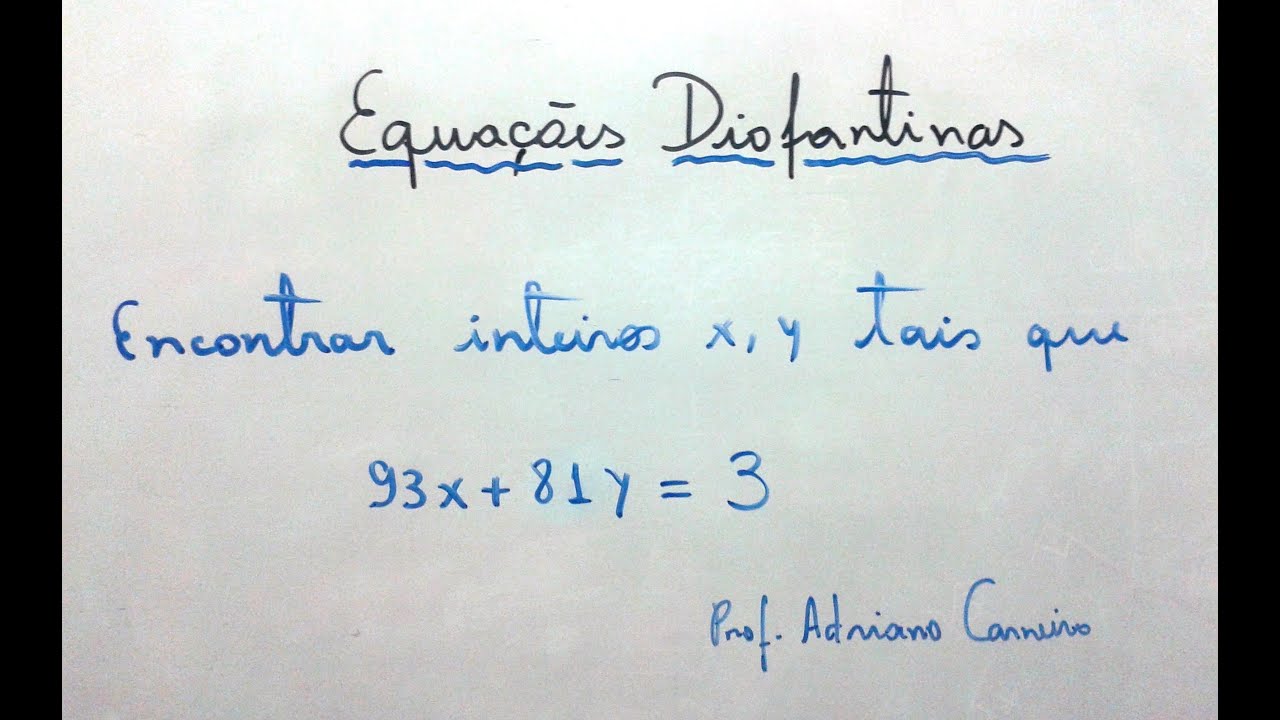 Equações Diofantinas
Encontrar inteiros x, y tais que
93x + 81y = 3
Prof. Adriano Carneiro